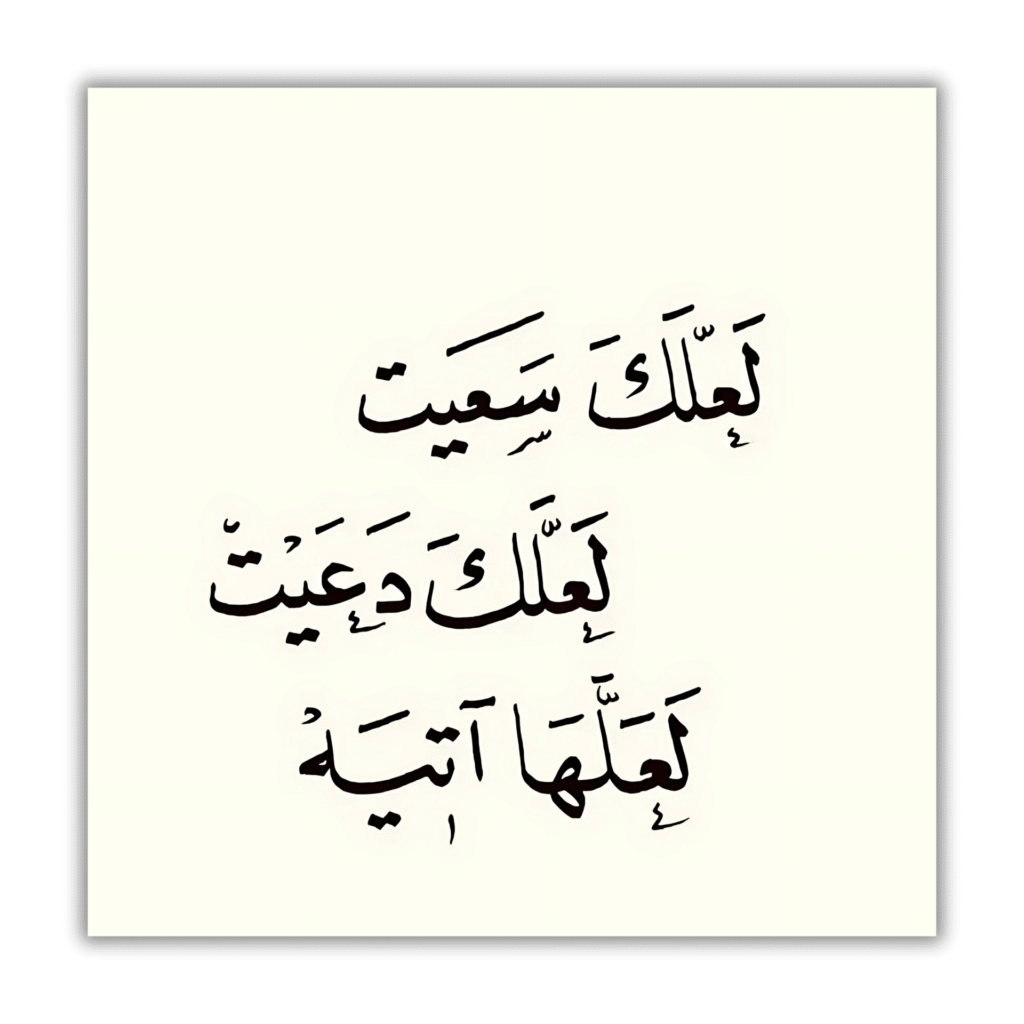 لَعَلَّكَ سَعَيت
لَعَلَّكَ دَعَيْتْ
لَعَلَّهَا آتِيَهْ